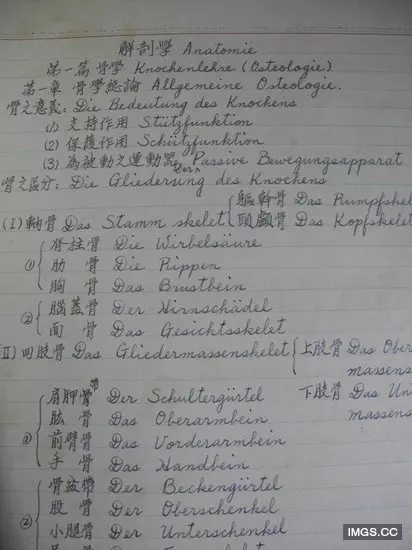 解剖學 Anatomie
第一篇 骨學 Knochenlehre (Osteologie)
第一章 骨學總論 Allgemeine Osteologie.
骨之意義: Die Bedeutung des Knochens
(1) 支持作用 Stützfunktion
(2) 保護作用 Schützfunktion
(3) 為被動之運動器 Der Passive Bewegungsapparat
骨之區分: Die Gliederung des Knochens
(I) 軸骨 Das Stamm skelet { 軀幹骨 Das Rumpfskel
頭顱骨 Das Kopfskelet
① { 脊柱骨 Die Wirbelsäure
肋 骨 Die Rippen
胸 骨 Das Brustbein
② { 腦蓋骨 Der Hirnschädel
面 骨 Das Gesichtsskelet
II) 四肢骨 Das Gliedermassenskelet { 上肢骨 Das Ober
massens
下肢骨 Das Un
massens
① { 肩胛骨帶 Der Schultergürtel
肱 骨 Das Oberarmbein
前臂骨 Das Vorderarmbein
手 骨 Das Handbein
② { 骨盆帶 Der Beckengürtel
股 骨 Der Oberschenkel
小腿骨 Der Unterschenkel
IMGS.CC